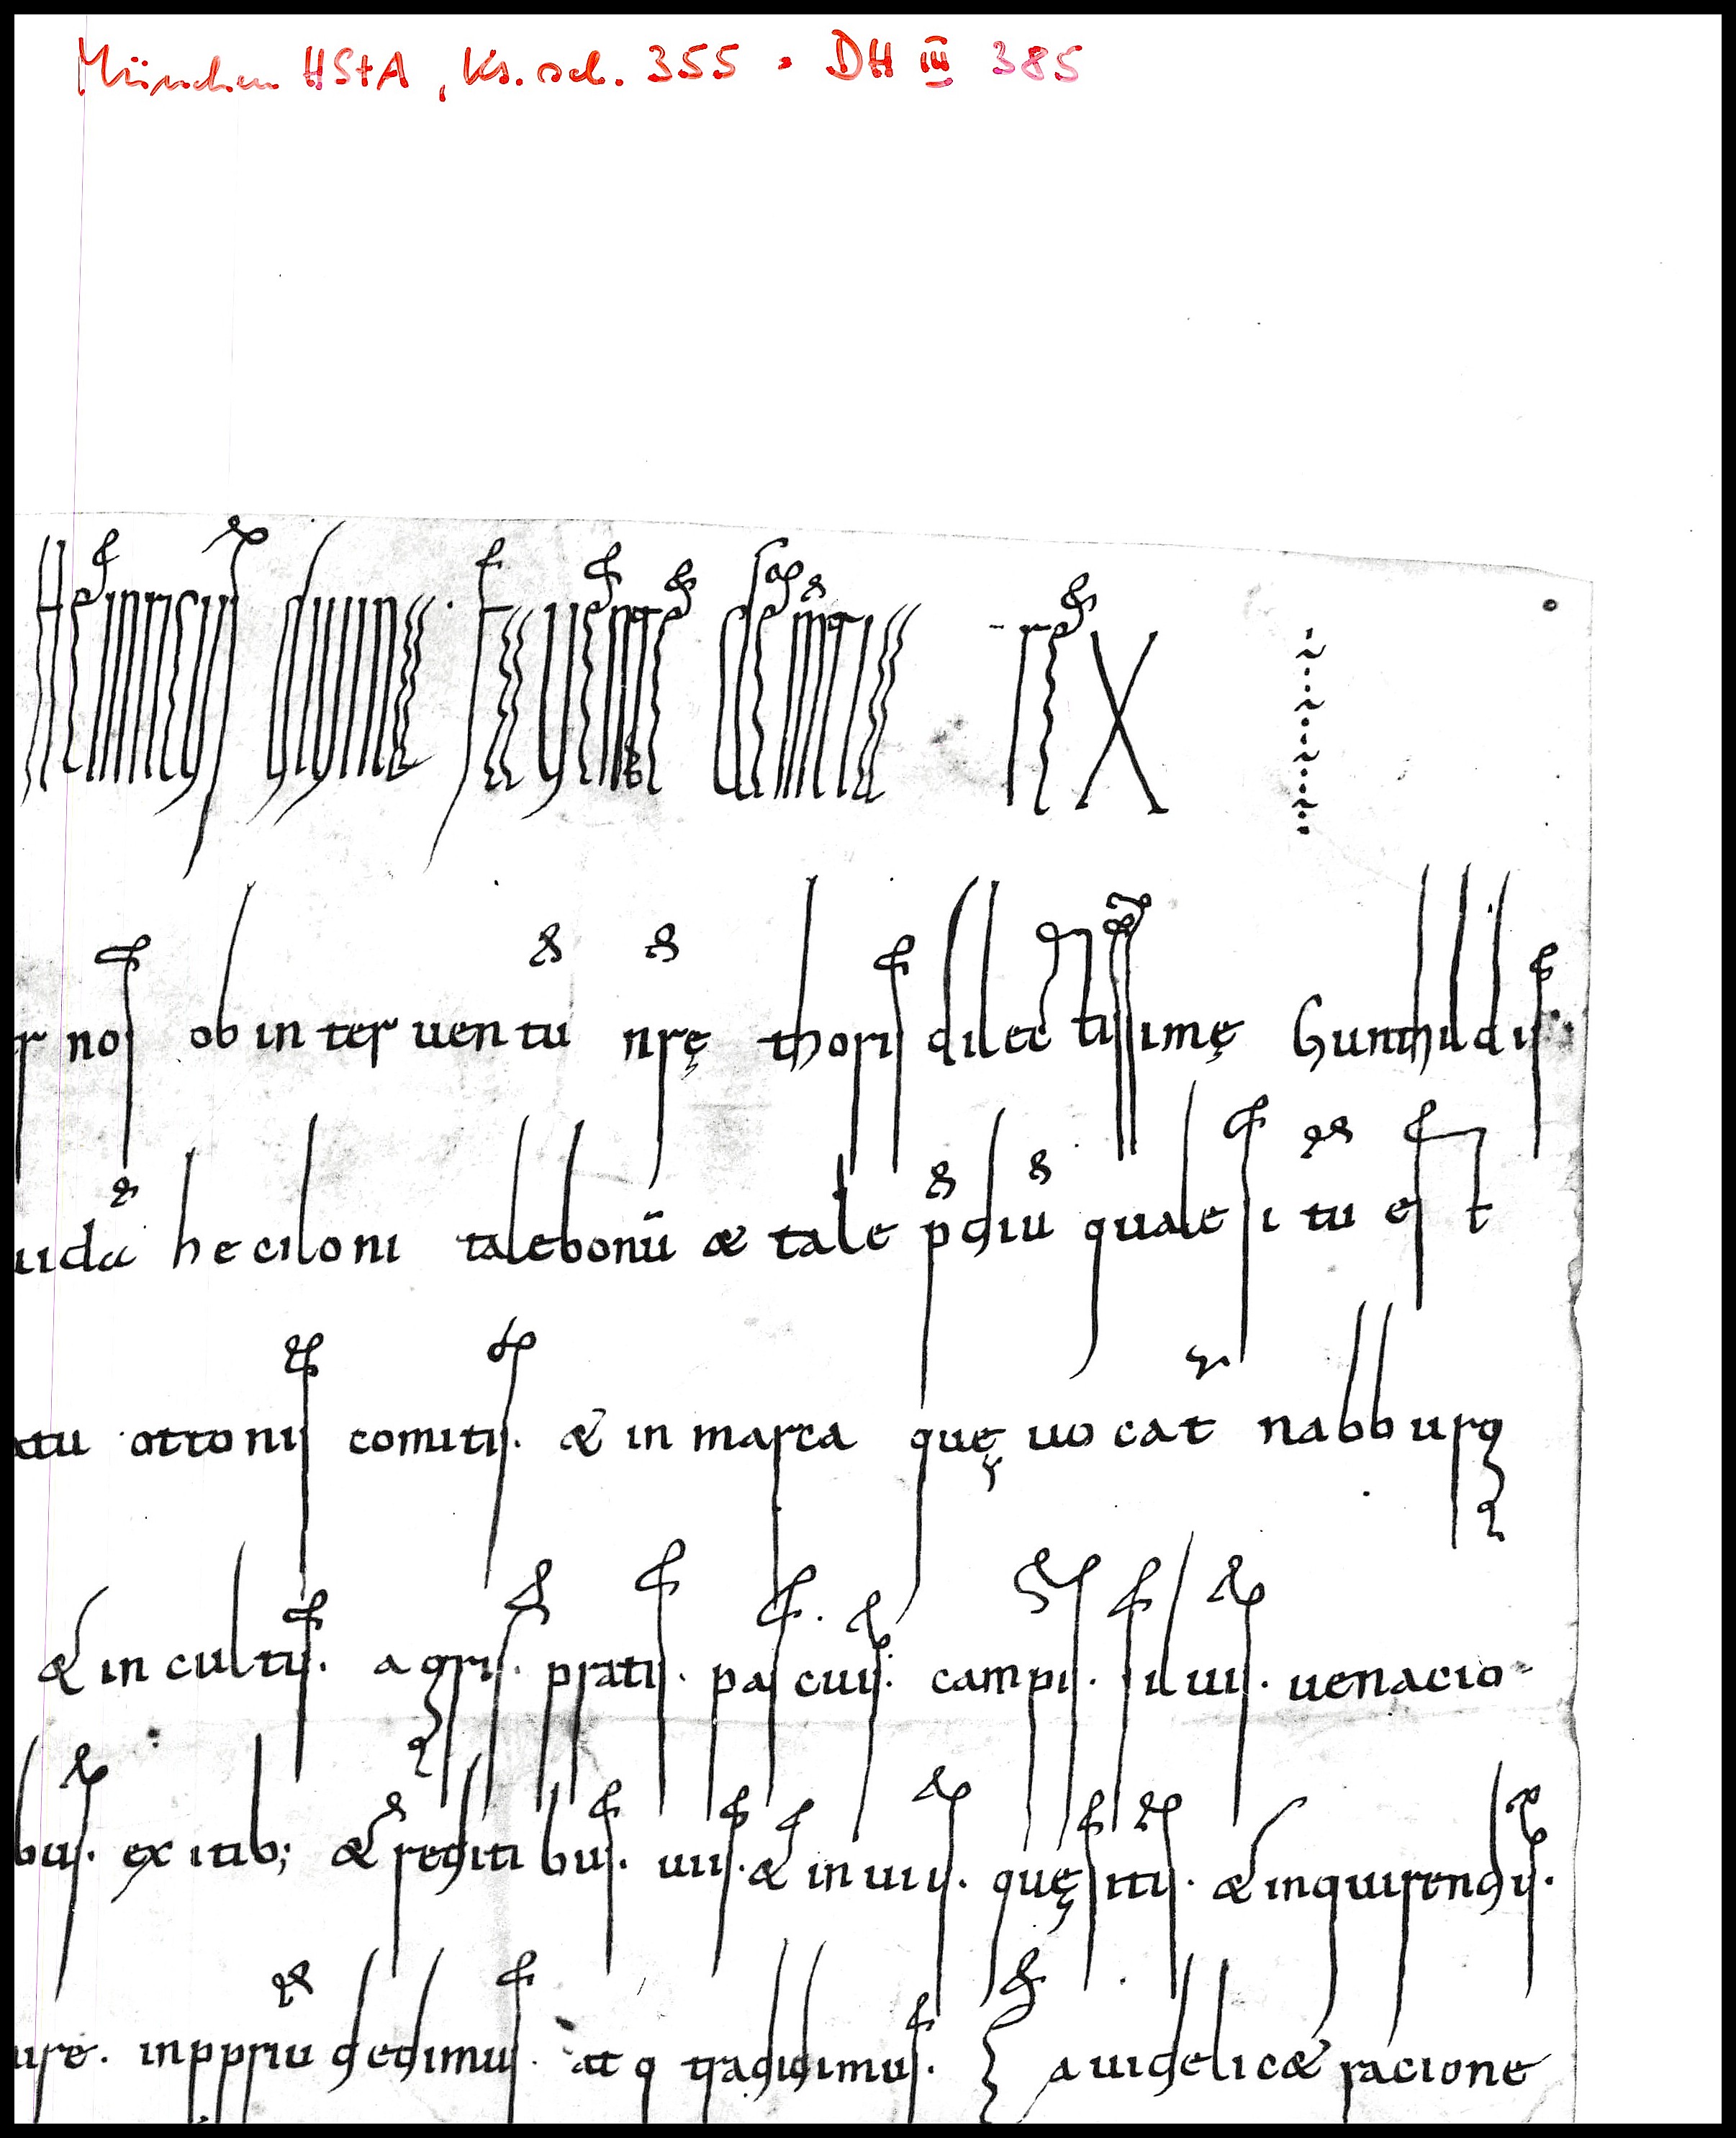 München HStA, Ks. sel. 355 · DH III 385
Heinricus diuina fauente clementia rex
r nos ob interuentū nrę thoris dilectissimę Gunthildis
uidā heciloni tale bonū & tale p̄diū quale situ est
atu ottonis comitis. & in marca quę uocat̄ nabburg
& incultis. agris. pratis. pascuis. campis. siluis. uenacio-
bus. exitib; & reditibus. uiis. & inuiis. quęsitis. & inquirendis.
ure. in ppriū dedimus. atq tradidimus. a uidelic& racione